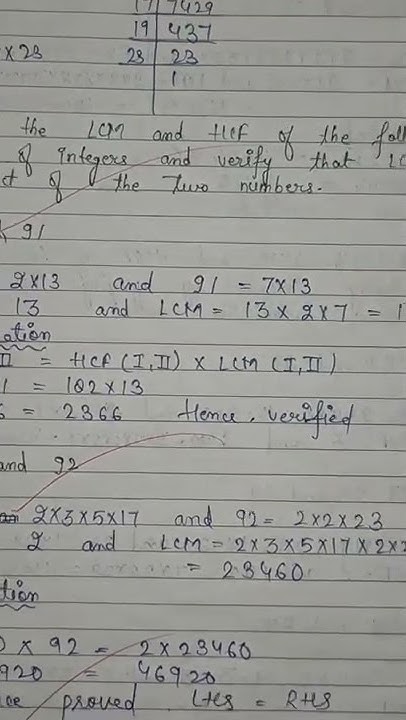 17 7429
19 437
x 23 23 23
1
the LCM and HCF of the foll
of integers and verify that LC
ct of the two numbers.
91
2x13 and 91 = 7x13
13 and LCM = 13 x 2 x 7 = 1
ation
II = HCF (I,II) x LCM (I,II)
1 = 182 x 13
6 = 2366 Hence, verified
and 92
2x3x5x17 and 92 = 2x2x23
2 and LCM = 2x3x5x17x2x2
= 23460
tion
0 x 92 = 2 x 23460
920 = 46920
ce proved LHS = RHS